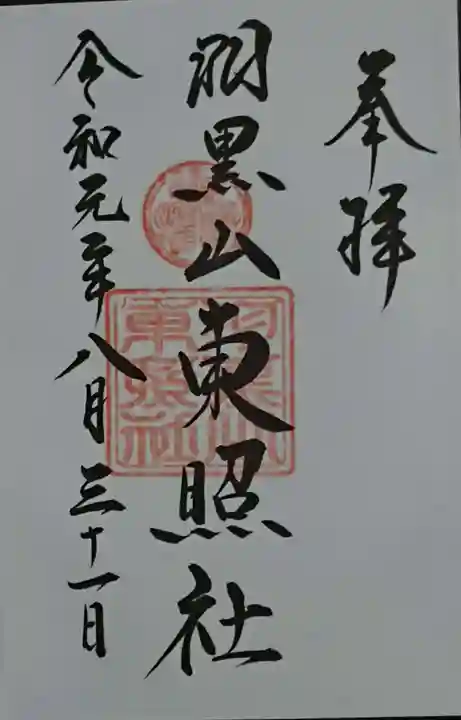 奉拝
羽黒山東照社
令和元年八月三十一日
羽黒山東照社